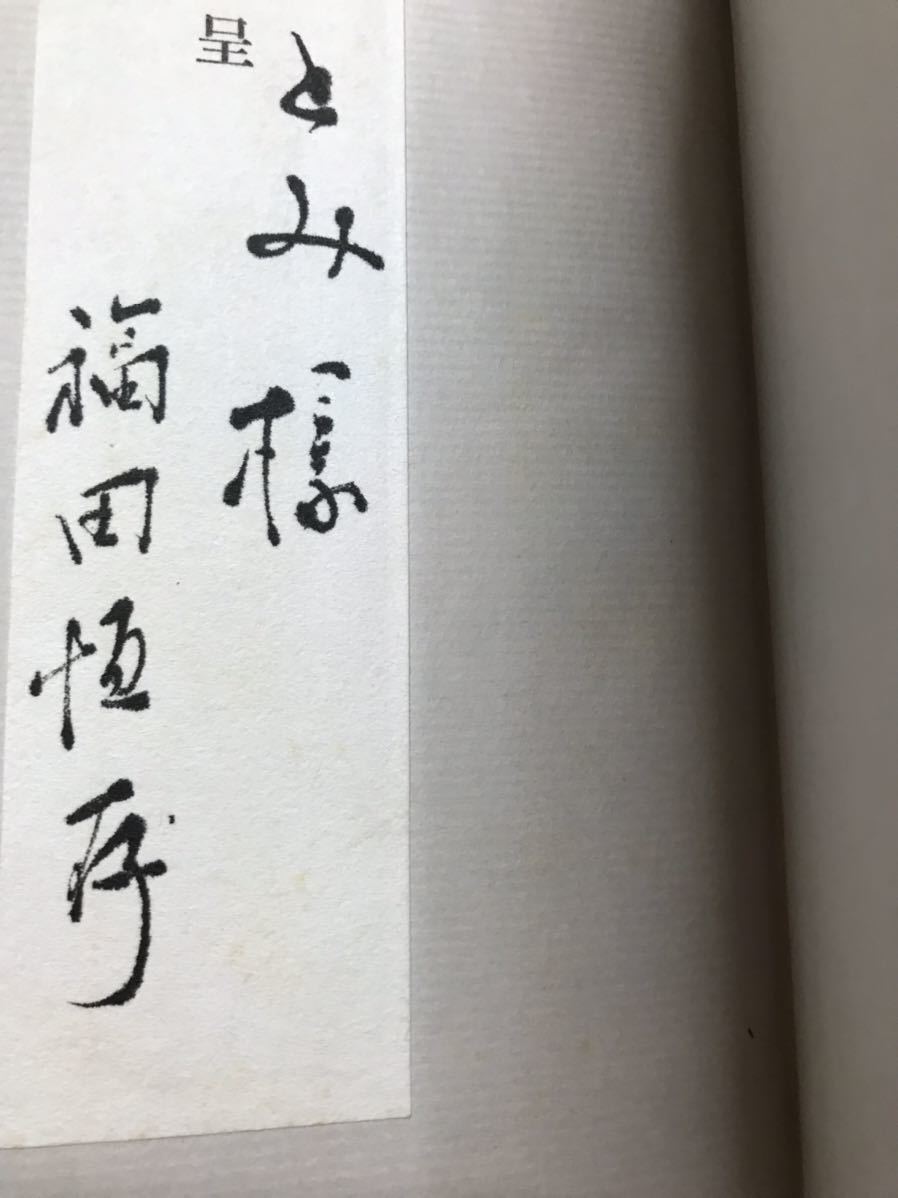 とみ様
呈
福田恆存